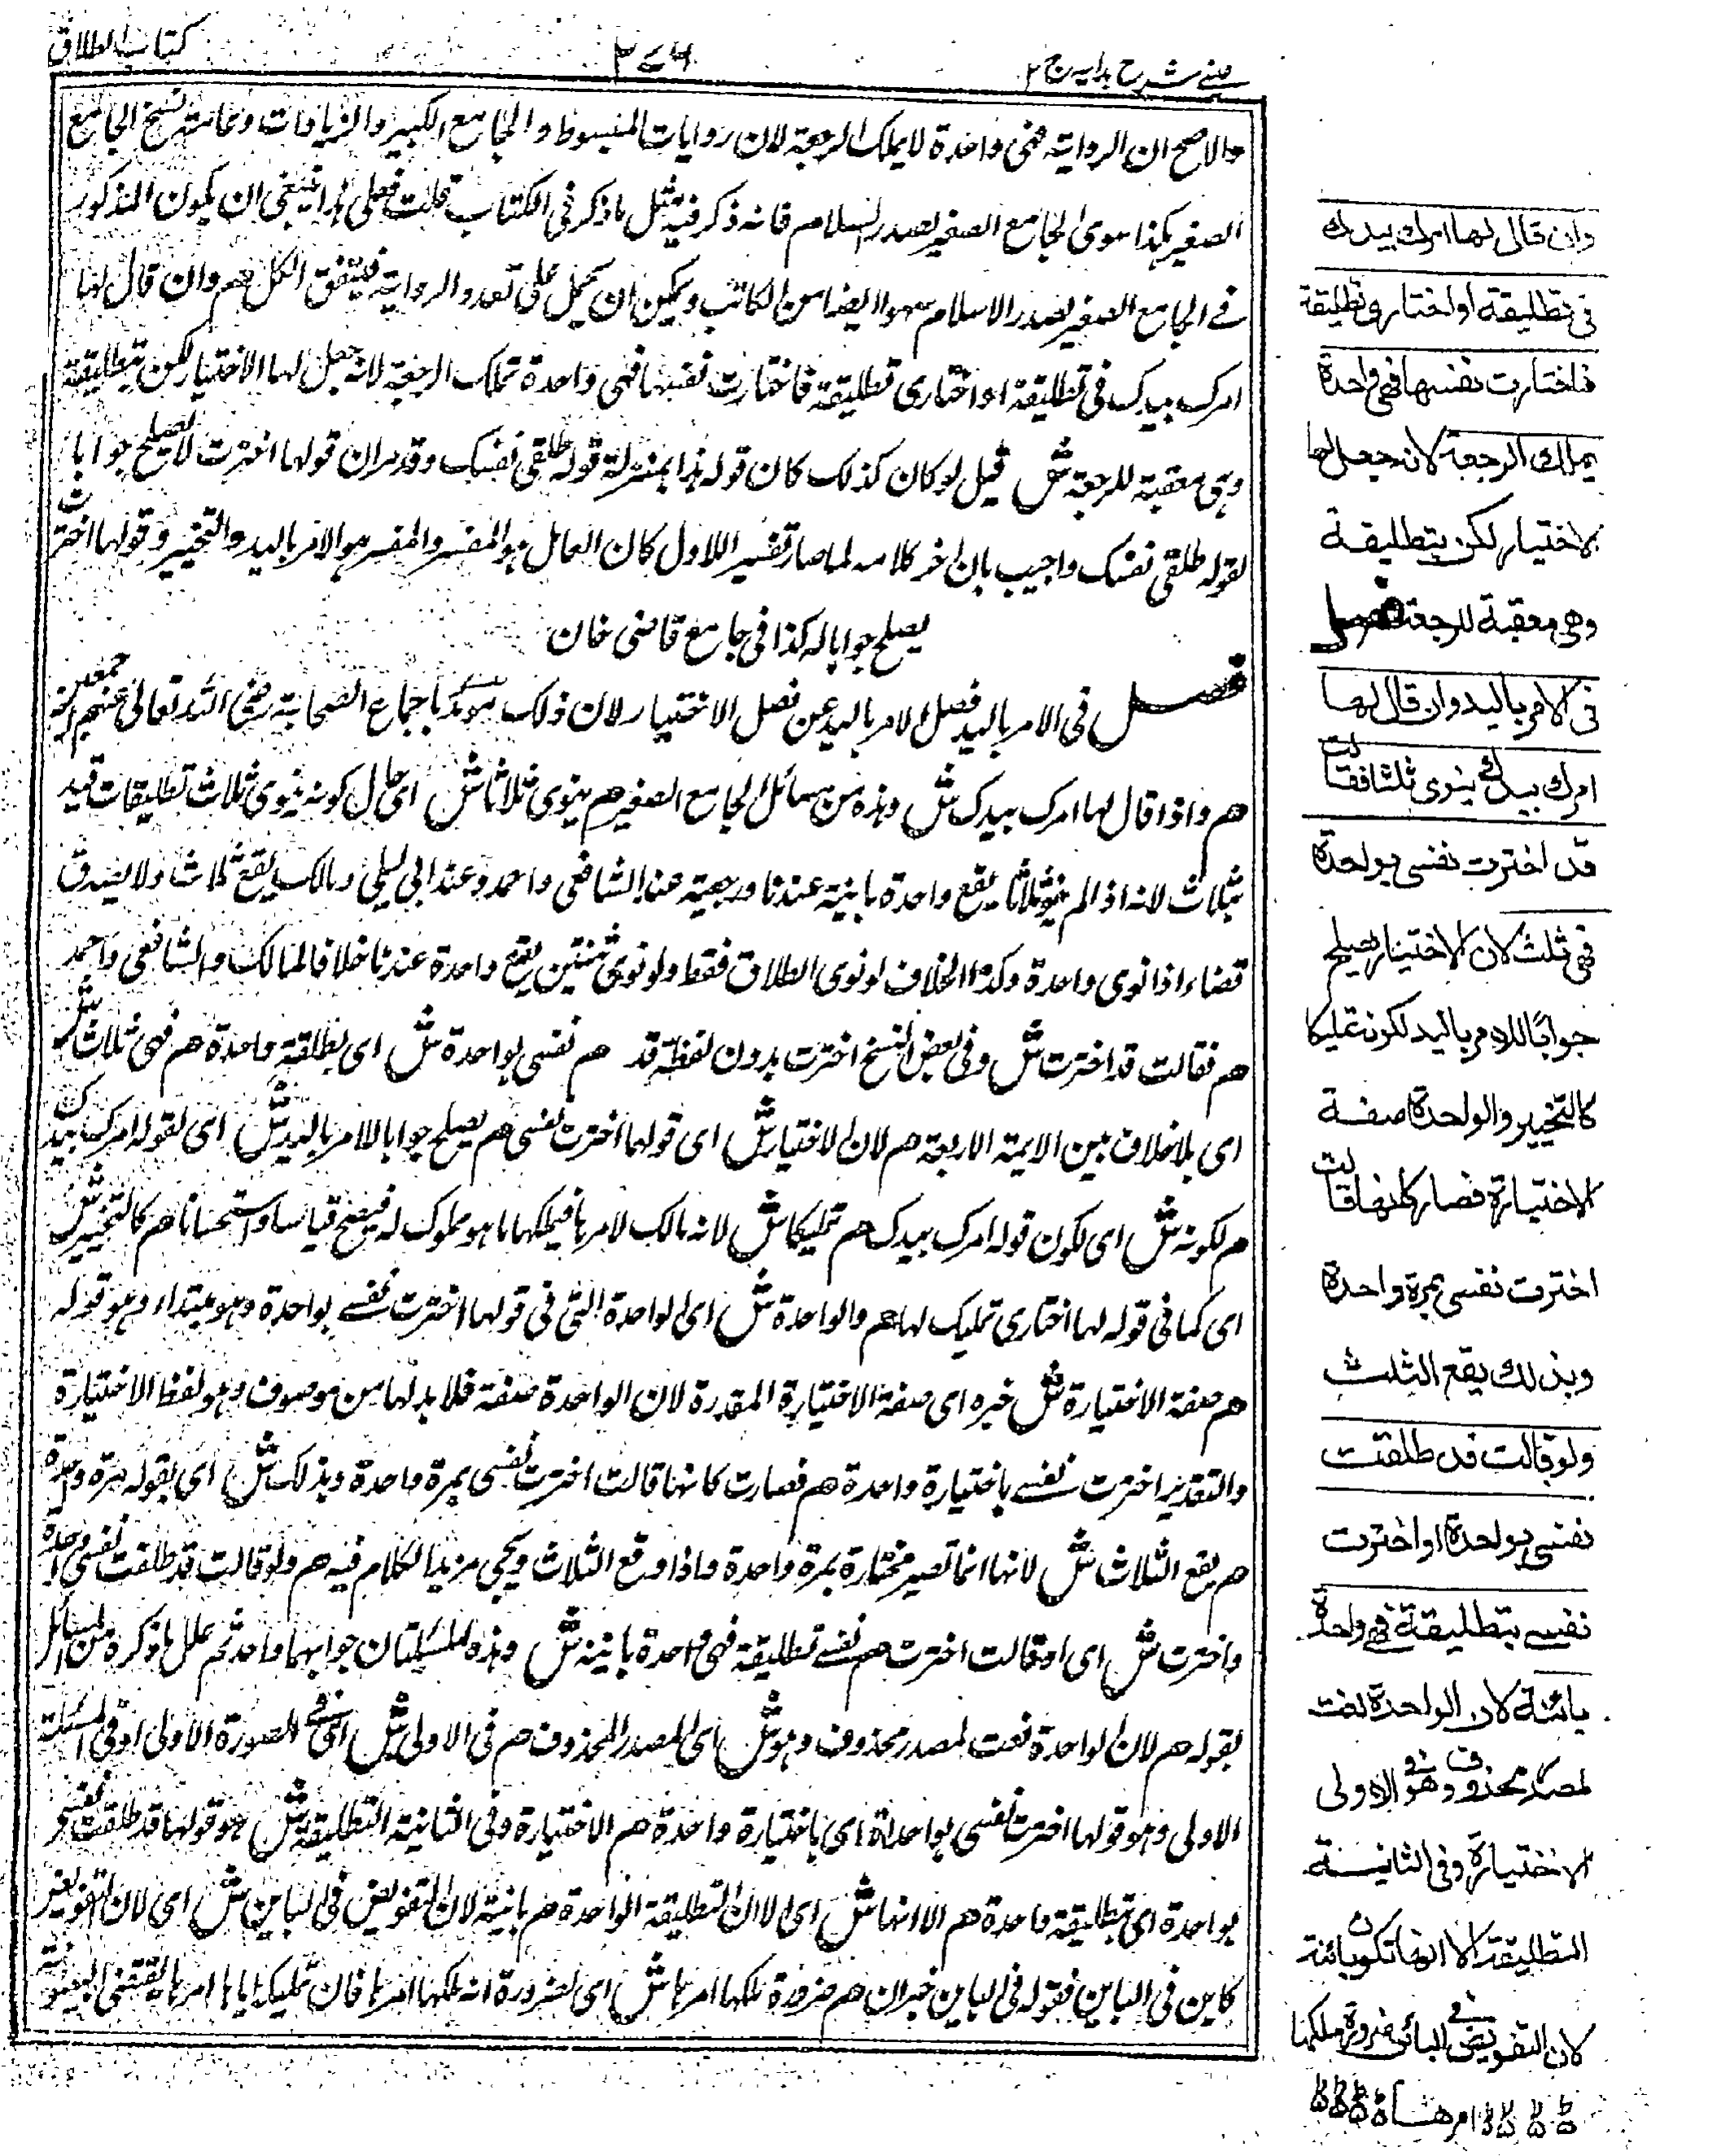 عینے شرح ہدایہ ج ۲
۲۷۶
کتاب الطلاق
والاصح ان الروایۃ فھی واحدۃ لا یملک الرجعۃ لان روایات المبسوط والجامع الکبیر والزیادات وعامۃ نسخ الجامع
الصغیر ہکذا سوی الجامع الصغیر لصدر الاسلام فانہ ذکر فیہ مثل ما ذکر فی الکتاب قلت فعلی ہذا ینبغی ان یکون المذکور
فے الجامع الصغیر لصدر الاسلام سہوا ایضا من الکاتب ویمکن ان یحمل علی تعدد الروایۃ فیتفق الکل ھم وان قال لہا
امرک بیدک فی تطلیقۃ او اختاری تطلیقۃ فاختارت نفسہا فھی واحدۃ تملک الرجعۃ لانہ جعل لہا الاختیار لکن بتطلیقۃ
وہی معقبۃ للرجعۃ ش قیل لو کان کذلک کان قولہ ہذا بمنزلۃ قولہ طلقی نفسک وقد مر ان قولہا اخترت لا یصلح جوابا
لقولہ طلقی نفسک واجیب بان اخر کلامہ لما صار تفسیرا للاول کان العامل ہو المفسر والمفسر ہو الامر بالید والتخییر وقولہا اخترت
یصلح جوابا لہ کذا فی جامع قاضی خان
فصل فی الامر بالید فصل الامر بالید عن فصل الاختیار لان ذلک موید باجماع الصحابۃ رضی اللہ تعالی عنہم اجمعین
ھم واذا قال لہا امرک بیدک ش وہذہ من مسائل الجامع الصغیر ھم ینوی ثلاثا ش ای حال کونہ ینوی ثلاث تطلیقات قید
بثلاث لانہ اذا لم ینو ثلاثا یقع واحدۃ باینۃ عندنا ورجعیۃ عند الشافعی واحمد وعند ابی لیلی ومالک یقع ثلاث ولا یصدق
قضاء اذا نوی واحدۃ وکذا الخلاف لو نوی الطلاق فقط ولو نوی ثنتین یقع واحدۃ عندنا خلافا لمالک والشافعی واحمد
ھم فقالت قد اخترت ش وفی بعض النسخ اخترت بدون لفظۃ قد ھم نفسی بواحدۃ ش ای بطلقۃ واحدۃ ھم فھی ثلاث ش
ای بلا خلاف بین الایمۃ الاربعۃ ھم لان الاختیار ش ای قولہا اخترت نفسی ھم یصلح جوابا للامر بالید ش ای لقولہ امرک بیدک
ھم لکونہ ش ای لکون قولہ امرک بیدک ھم تملیکا ش لانہ مالک لامرہا فیملکہا ما ہو مملوک لہ فیصح قیاسا واستحسانا ھم کالتخییر ش
ای کما فی قولہ لہا اختاری تملیک لہا ھم والواحدۃ ش ای الواحدۃ التی فی قولہا اخترت نفسے بواحدۃ وہو مبتداء وہو قولہ
ھم صفۃ الاختیارۃ ش خبرہ ای صفۃ الاختیارۃ المقدرۃ لان الواحدۃ صفۃ فلا بد لہا من موصوف وہو لفظ الاختیارۃ
والتقدیر اخترت نفسے باختیارۃ واحدۃ ھم فصارت کانہا قالت اخترت نفسی بمرۃ واحدۃ وبذلک ش ای بقولہ بمرۃ واحدۃ
ھم یقع الثلاث ش لانہا انما تصیر مختارۃ بمرۃ واحدۃ واذا وقع الثلاث ویجی مزید الکلام فیہ ھم ولو قالت قد طلقت نفسی واحدۃ
واخترت ش ای او قالت اخترت ھم نفسے تطلیقۃ فھی واحدۃ باینۃ ش وہذہ المسئلتان جوابہما واحد ثم علل ما ذکرہ من المسائل
بقولہ ھم لان الواحدۃ نعت لمصدر محذوف وہو ش ای المصدر المحذوف ھم فی الاولی ش ای فے الصورۃ الاولی او فی المسئلۃ
الاولی وہو قولہا اخترت نفسی بواحدۃ ای باختیارۃ واحدۃ ھم الاختیارۃ وفی الثانیۃ التطلیقۃ ش وہو قولہا قد طلقت نفسی
بواحدۃ ای بتطلیقۃ واحدۃ ھم الا انہا ش ای الا ان التطلیقۃ الواحدۃ ھم باینۃ لان التفویض فی الباین ش ای لان التفویض
کاین فی الباین فقولہ فی الباین خبر ان ھم ضرورۃ ملکہا امرہا ش ای لضرورۃ انہ ملکہا امرہا فان تملیکہ ایاہا امرہا یقتضی البینونۃ
وان قال لها امرك بيدك
فى تطليقة او اختارى تطليقة
فاختارت نفسها فهى واحدة
يملك الرجعة لانه جعل لها
الاختيار لكن بتطليقة
وهى معقبة للرجعة فصل
فى الامر باليد وان قال لها
امرك بيدك ينوى ثلثا فقالت
قد اخترت نفسى بواحدة
فهى ثلث لان الاختيار يصلح
جوابًا للامر باليد لكونه تمليكا
كالتخيير والواحدة صفة
الاختيارة فصار كانها قالت
اخترت نفسى بمرة واحدة
وبذلك يقع الثلث
ولو قالت قد طلقت
نفسى بواحدة او اخترت
نفسے بتطليقة فهى واحدة
بائنة لان الواحدة نعت
لمصدر محذوف وهو فى الاولى
الاختيارة وفى الثانية
التطليقة الا انها تكون بائنة
لان التفويض فى البائن ضرورة ملكها
امرها